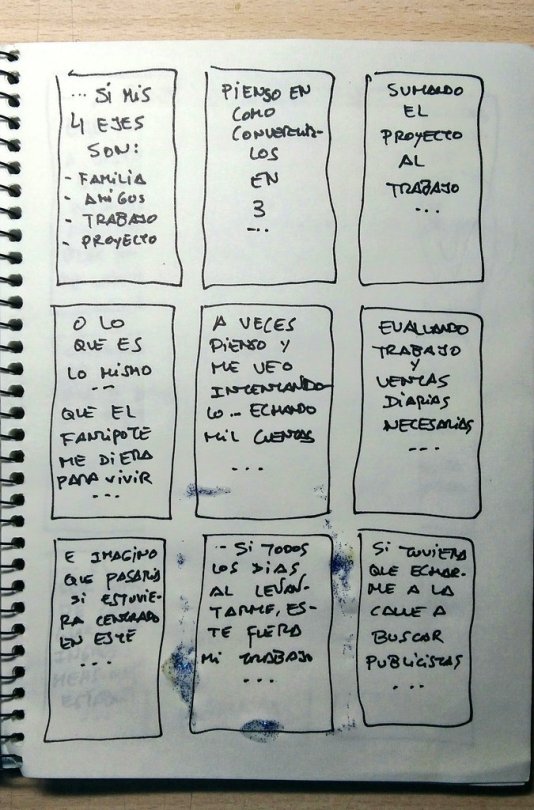 ... Si MiS
4 EJES
SON:
- FAMILIA
- AMIGOS
- TRABAJO
- PROYECTO
PIENSO EN
COMO
CONVERTIR-
LOS
EN
3
...
SUMANDO
EL
PROYECTO
AL
TRABAJO
...
O LO
QUE ES
LO MISMO
...
QUE EL
FANZIPOTE
ME DIERA
PARA VIVIR
...
A VECES
PIENSO Y
ME VEO
INTENTANDO
LO... ECHANDO
MIL CUENTAS
...
EVALUANDO
TRABAJO
Y
VENTAS
DIARIAS
NECESARIAS
...
E IMAGINO
QUE PASARIA
SI ESTUVIE-
RA CENTRADO
EN ESTE
...
... SI TODOS
LOS DÍAS
AL LEVAN-
TARME, ES-
TE FUERA
MI TRABAJO
...
SI TUVIERA
QUE ECHAR-
ME A LA
CALLE A
BUSCAR
PUBLICISTAS
...